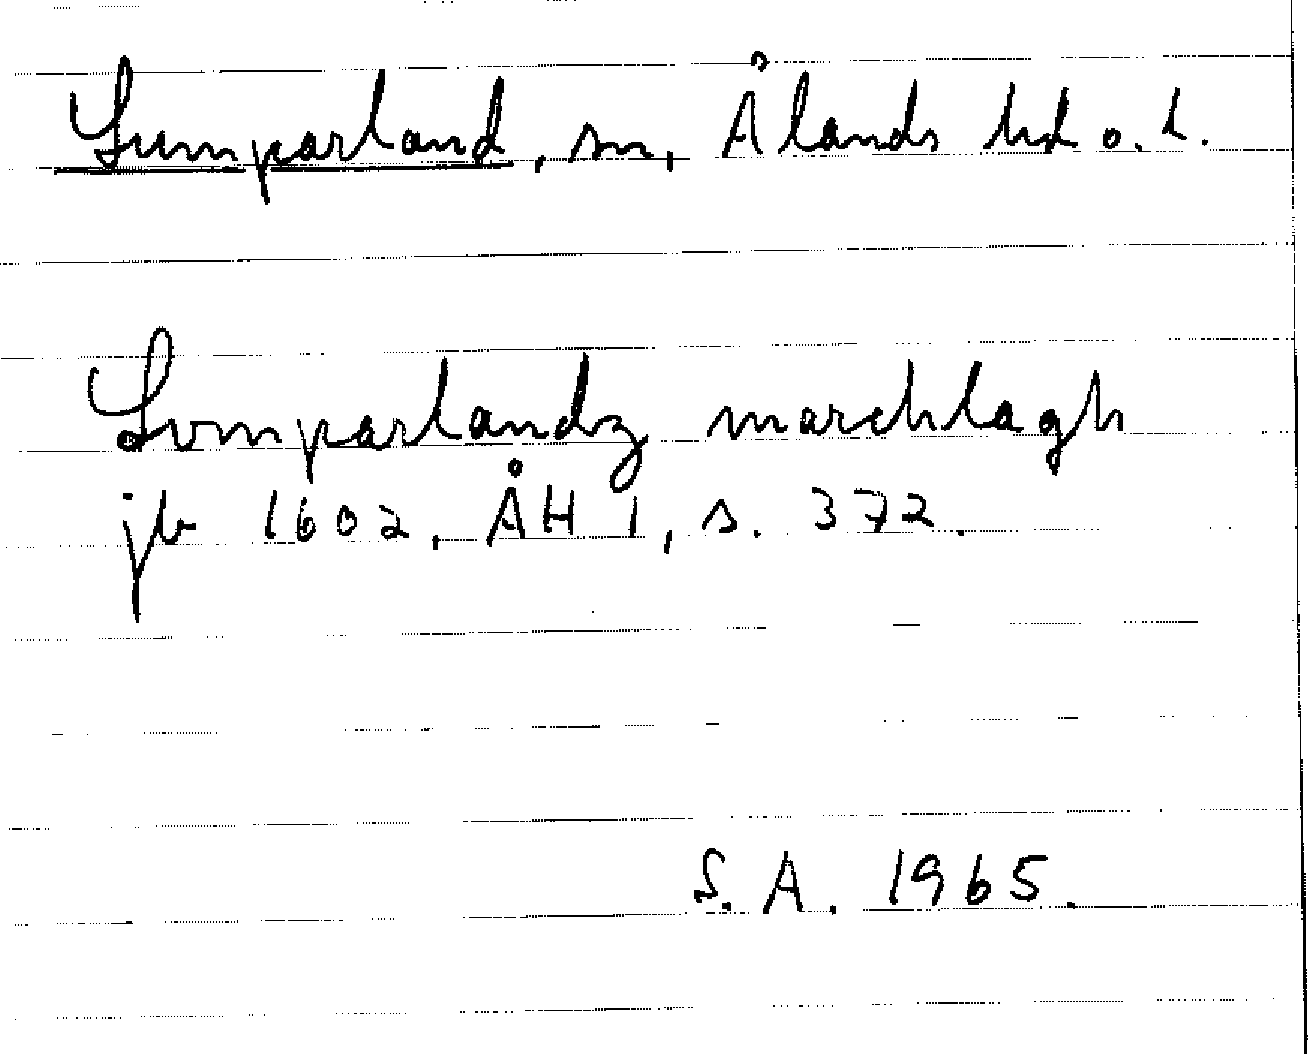 Sumparland, sn, Ålands hd o. l.
Svmparlandz marchlagh
jb 1602, ÅH 1, s. 372.
S. A. 1965.